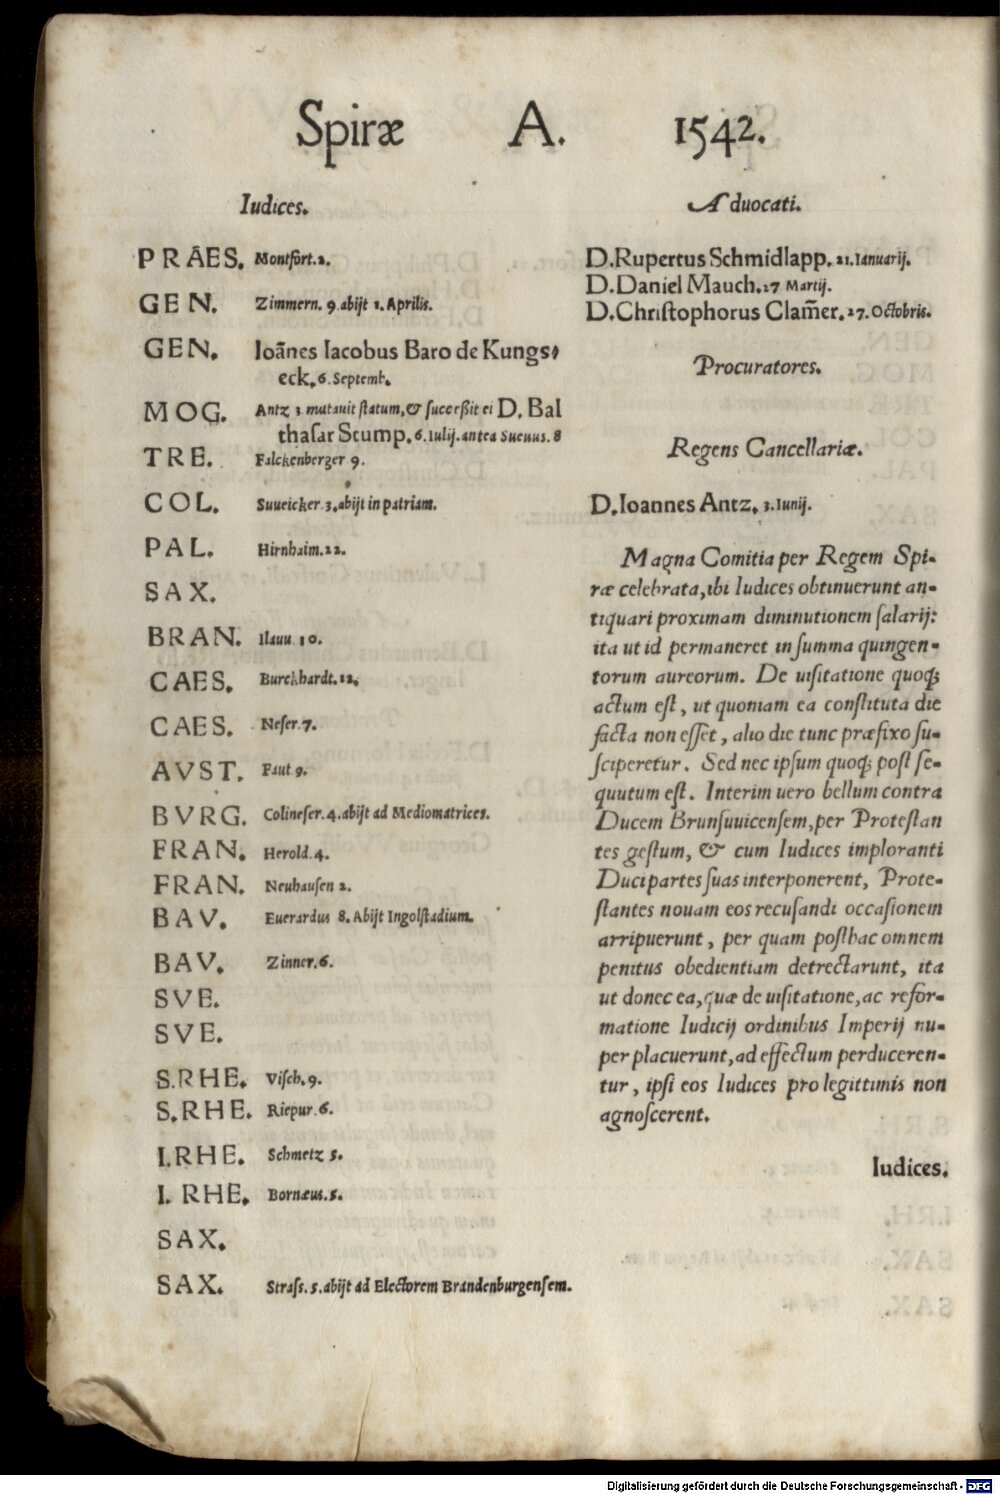 Spiræ A. 1542.
Iudices.
PRÆS. Montfort. 2.
GEN. Zimmern. 9 abijt 1. Aprilis.
GEN. Ioãnes Iacobus Baro de Kungs-
eck. 6. Septemb.
MOG. Antz 3 mutauit ſtatum, & ſucceßit ei D. Bal
thaſar Stump. 6. Iulij. antea Sueuus. 8
TRE. Falckenberger 9.
COL. Suueicker. 3. abijt in patriam.
PAL. Hirnhaim. 22.
SAX.
BRAN. Ilauu. 10.
CAES. Burckhardt. 12.
CAES. Neſer. 7.
AVST. Faut 9.
BVRG. Colineſer. 4. abijt ad Mediomatrices.
FRAN. Herold. 4.
FRAN. Neuhauſen 2.
BAV. Euerardus 8. Abijt Ingolſtadium.
BAV. Zinner. 6.
SVE.
SVE.
S.RHE. Viſch. 9.
S.RHE. Riepur. 6.
I.RHE. Schmetz 5.
I. RHE. Bornæus. 5.
SAX.
SAX. Straſs. 5. abijt ad Electorem Brandenburgenſem.
Aduocati.
D. Rupertus Schmidlapp. 21. Ianuarij.
D. Daniel Mauch. 27 Martij.
D. Chriſtophorus Clam̃er. 27. Octobris.
Procuratores.
Regens Cancellariæ.
D. Ioannes Antz. 3. Iunij.
Magna Comitia per Regem Spi-
ræ celebrata, ibi Iudices obtinuerunt an-
tiquari proximam diminutionem ſalarij:
ita ut id permaneret in ſumma quingen-
torum aureorum. De uiſitatione quoq́;
actum eſt, ut quoniam ea conſtituta die
facta non eſſet, alio die tunc præfixo ſu-
ſciperetur. Sed nec ipſum quoq́; poſt ſe-
quutum eſt. Interim uero bellum contra
Ducem Brunſuuicenſem, per Proteſtan
tes geſtum, & cum Iudices imploranti
Duci partes ſuas interponerent, Prote-
ſtantes nouam eos recuſandi occaſionem
arripuerunt, per quam poſthac omnem
penitus obedientiam detrectarunt, ita
ut donec ea, quæ de uiſitatione, ac refor-
matione Iudicij ordinibus Imperij nu-
per placuerunt, ad effectum perduceren-
tur, ipſi eos Iudices pro legittimis non
agnoſcerent.
Iudices.
Digitalisierung gefördert durch die Deutsche Forschungsgemeinschaft - DFG